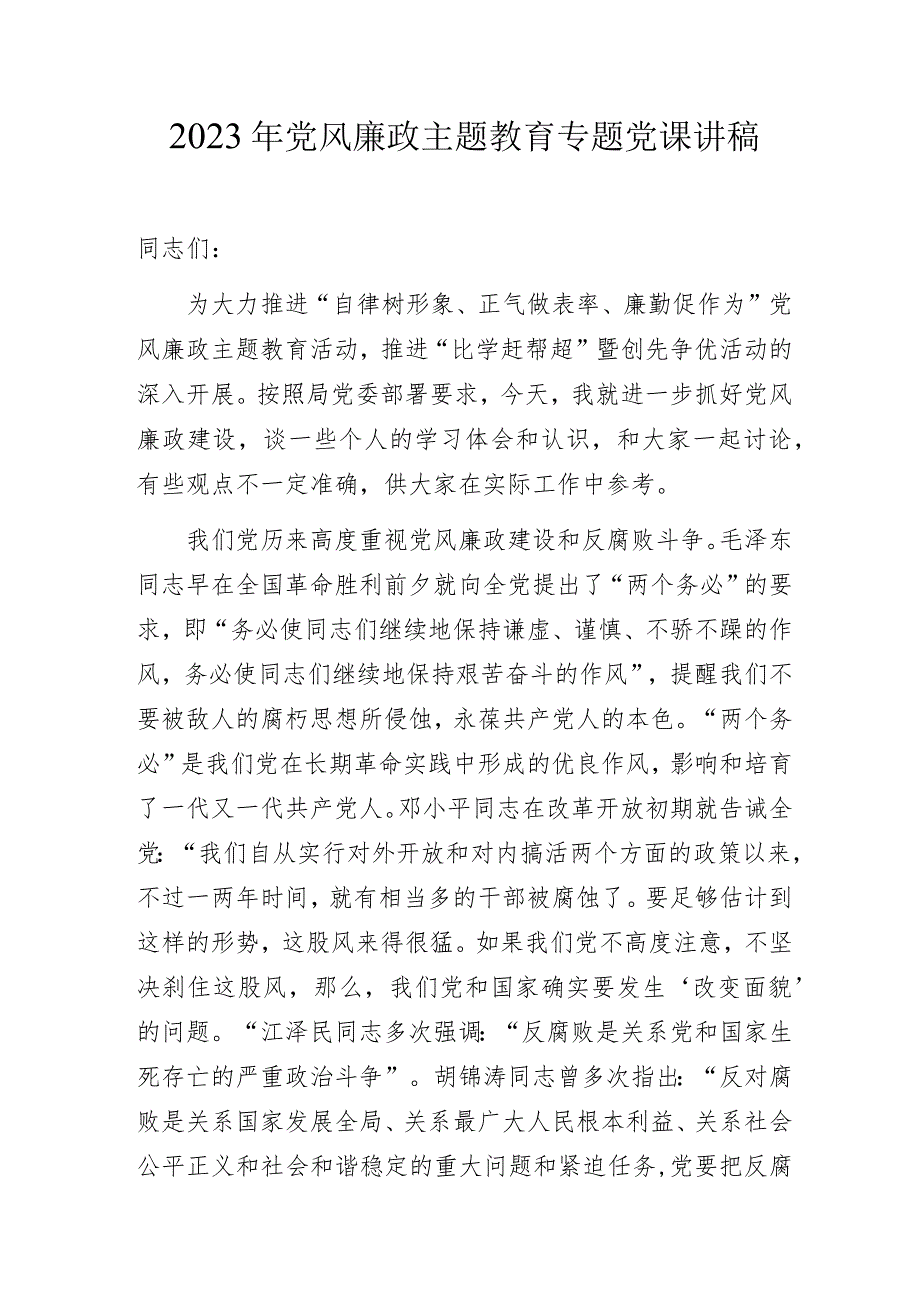 2023年党风廉政主题教育专题党课讲稿
同志们：
为大力推进“自律树形象、正气做表率、廉勤促作为”党
风廉政主题教育活动，推进“比学赶帮超”暨创先争优活动的
深入开展。按照局党委部署要求，今天，我就进一步抓好党风
廉政建设，谈一些个人的学习体会和认识，和大家一起讨论，
有些观点不一定准确，供大家在实际工作中参考。
我们党历来高度重视党风廉政建设和反腐败斗争。毛泽东
同志早在全国革命胜利前夕就向全党提出了“两个务必”的要
求，即“务必使同志们继续地保持谦虚、谨慎、不骄不躁的作
风，务必使同志们继续地保持艰苦奋斗的作风”，提醒我们不
要被敌人的腐朽思想所侵蚀，永葆共产党人的本色。“两个务
必”是我们党在长期革命实践中形成的优良作风，影响和培育
了一代又一代共产党人。邓小平同志在改革开放初期就告诫全
党：“我们自从实行对外开放和对内搞活两个方面的政策以来，
不过一两年时间，就有相当多的干部被腐蚀了。要足够估计到
这样的形势，这股风来得很猛。如果我们党不高度注意，不坚
决刹住这股风，那么，我们党和国家确实要发生‘改变面貌’
的问题。“江泽民同志多次强调：“反腐败是关系党和国家生
死存亡的严重政治斗争”。胡锦涛同志曾多次指出：“反对腐
败是关系国家发展全局、关系最广大人民根本利益、关系社会
公平正义和社会和谐稳定的重大问题和紧迫任务,党要把反腐